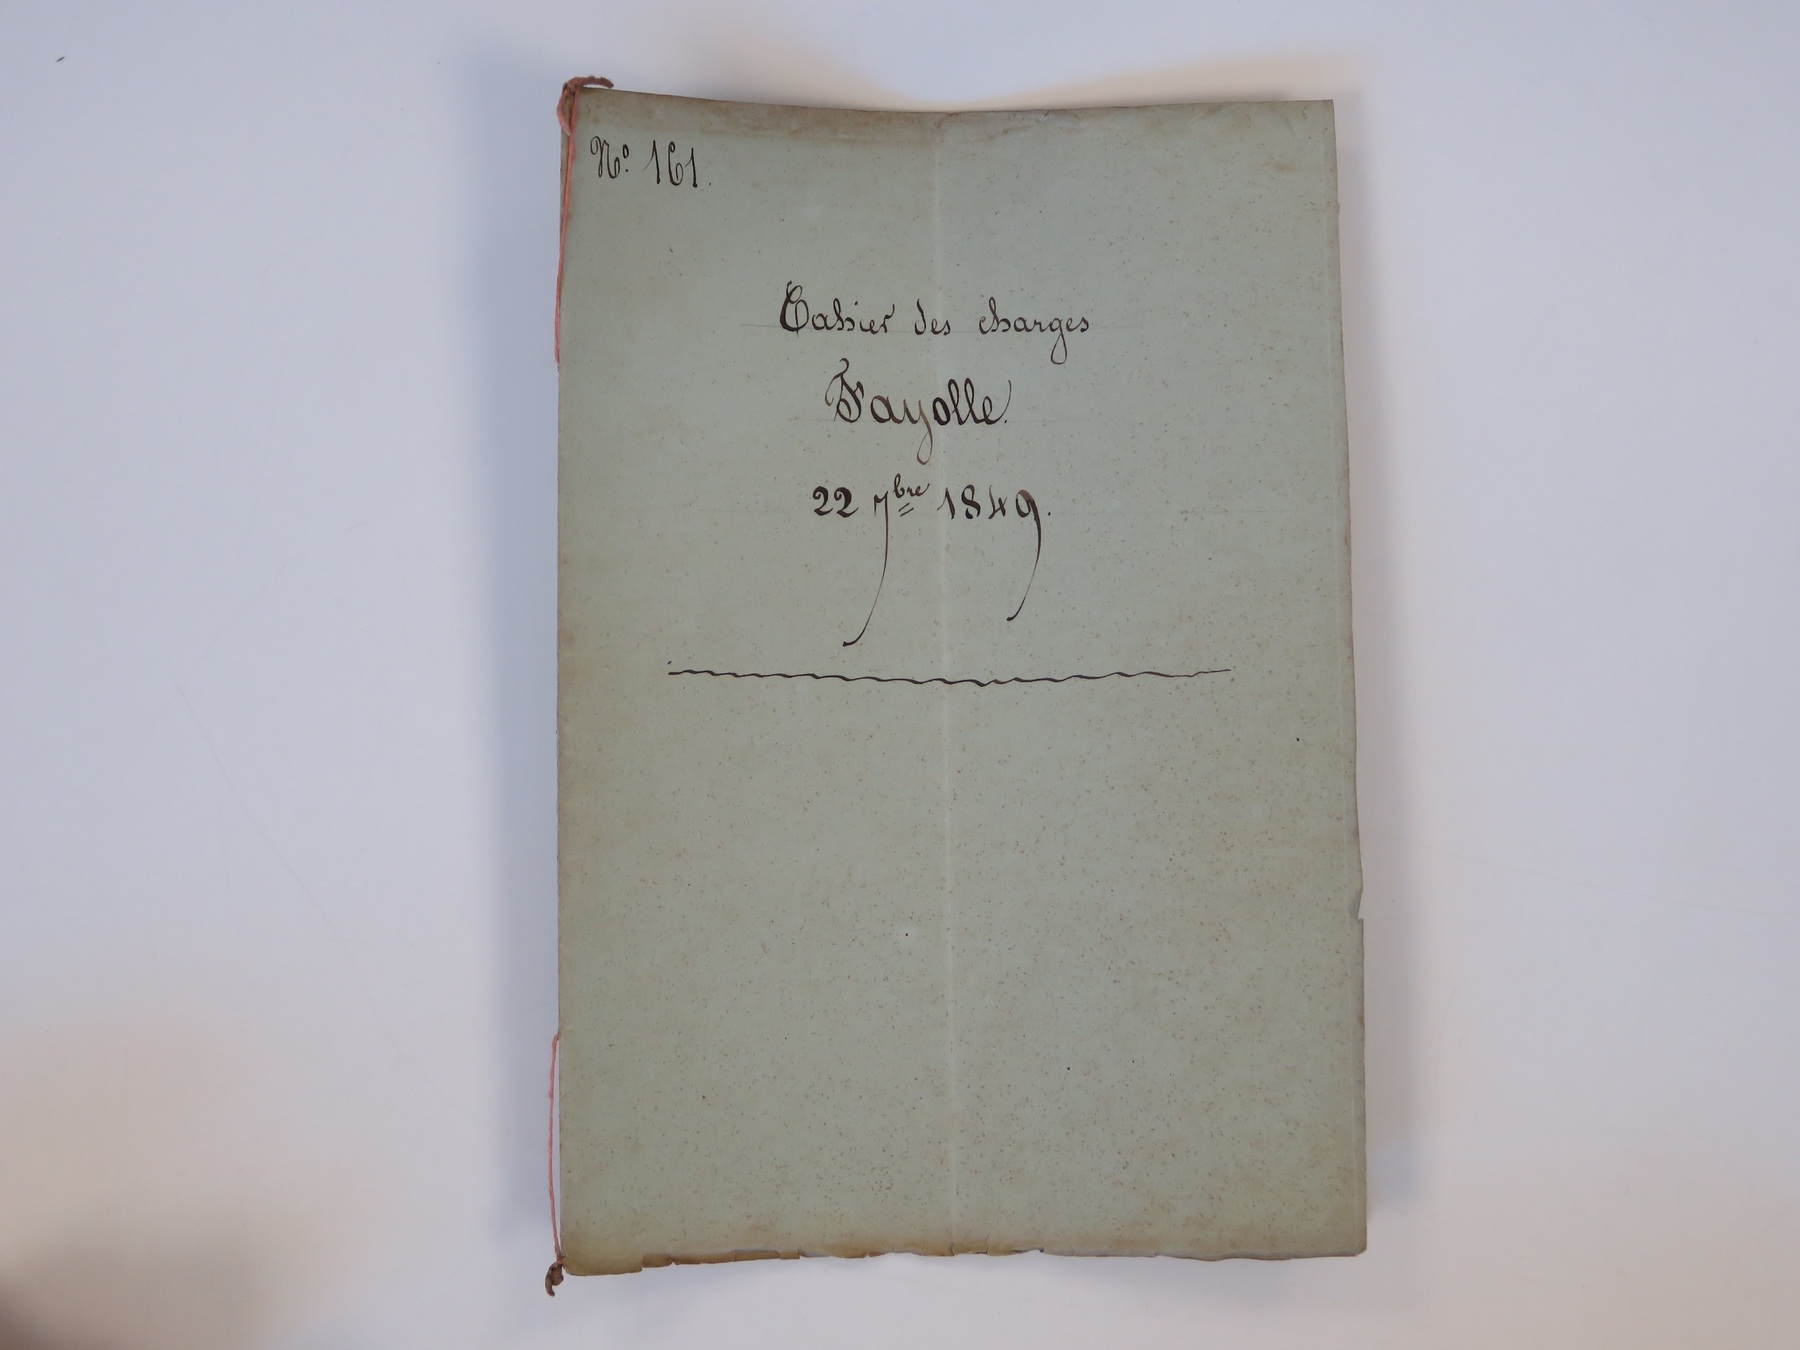 N° 161.
Cahier des charges
Fayolle.
22 7bre 1849.